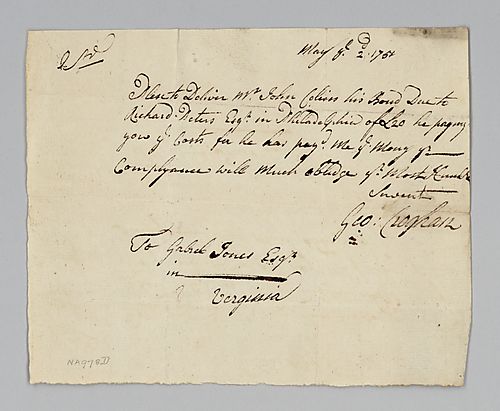 May ye. 2d. 1751
Sr.
Plese to Deliver Mr. John Colins his Bond Due to
Richard Peters Esqr. in Philadelphie of £20 he paying
you ye. Costs for he has payd. Me ye. Mony yr.
Complyance will Much obledge yr. Most Humble
Servent
Geo: Croghan
To Gabriel Jones Esqr.
in
Verginia
NA978D